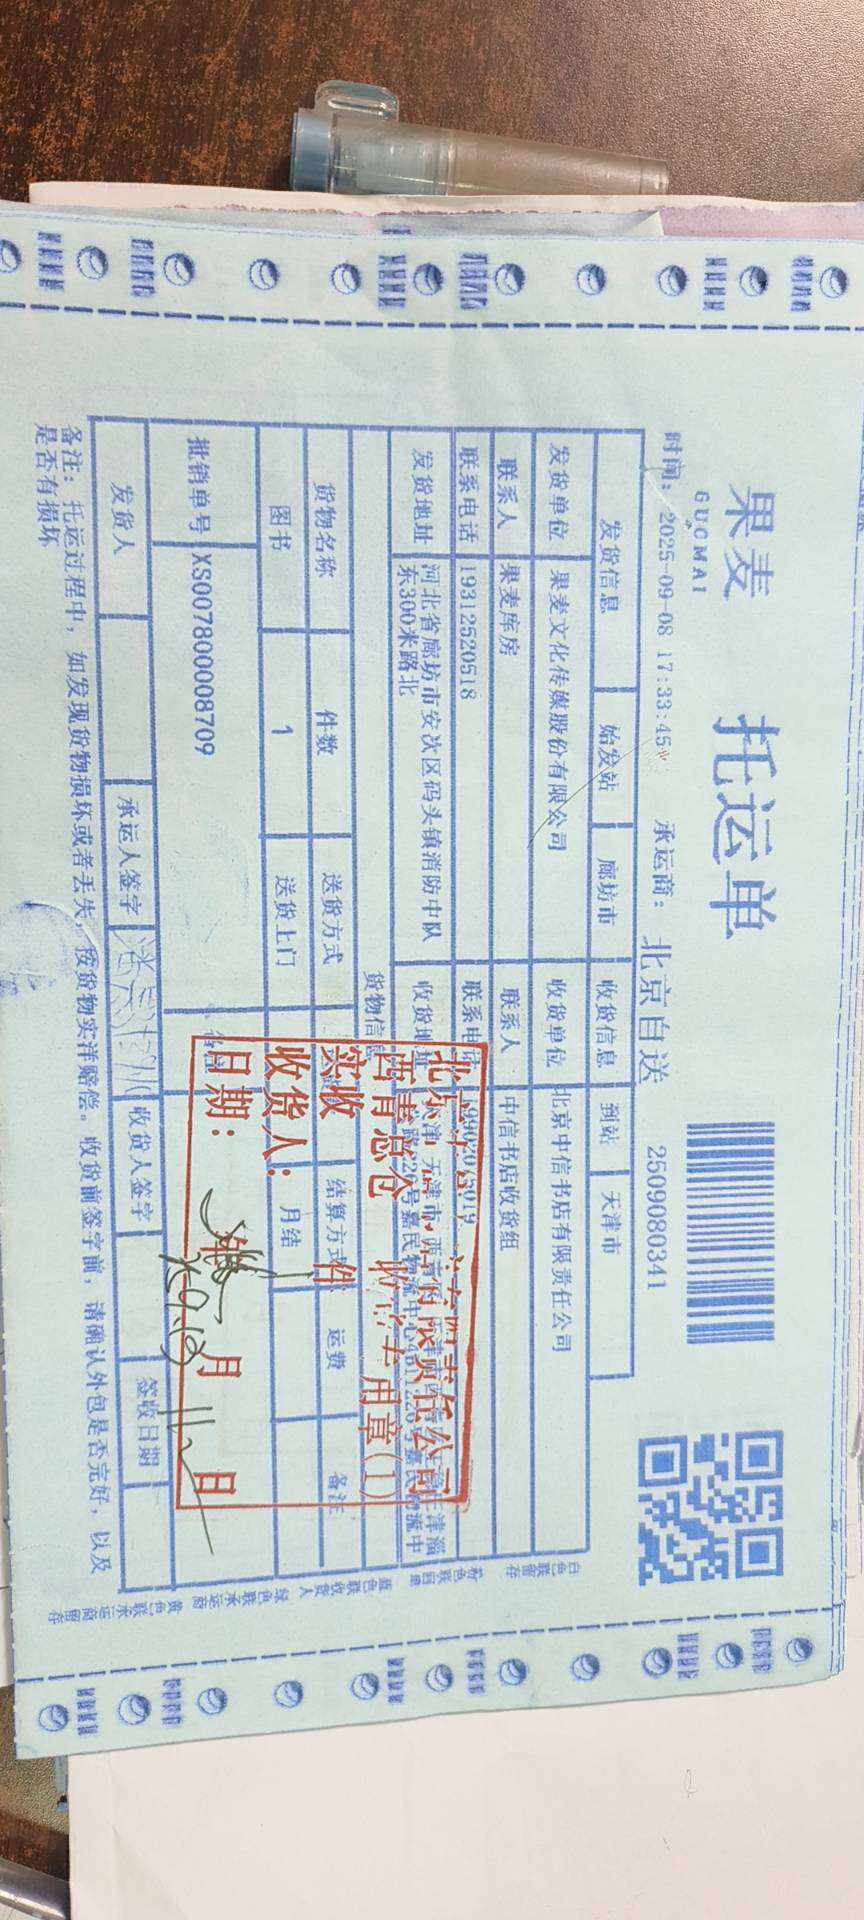 果麦
GUOMAI
托运单
时间: 2025-09-08 17:33:45
承运商: 北京自送
2509080341
发货信息 始发站 廊坊市 收货信息 到站 天津市
发货单位 果麦文化传媒股份有限公司 收货单位 北京中信书店有限责任公司
联系人 果麦库房 联系人 中信书店收货组
联系电话 19312520518 联系电话
发货地址 河北省廊坊市安次区码头镇消防中队东300米路北 收货地址
货物信息
货物名称 件数 送货方式 结算方式 运费 备注
图书 1 送货上门 月结
批销单号 XS007800008709
发货人 承运人签字 收货人签字 签收日期
备注: 托运过程中, 如发现货物损坏或者丢失, 按货物实洋赔偿。收货前签字前, 请确认外包是否完好, 以及
是否有损坏
白色联留存
粉色联回单
蓝色联收货人
绿色联承运商
黄色联承运商留存
有限责任公司
西青总仓 收货专用章(1)
实收 件
收货人:
日期: 年 月 日